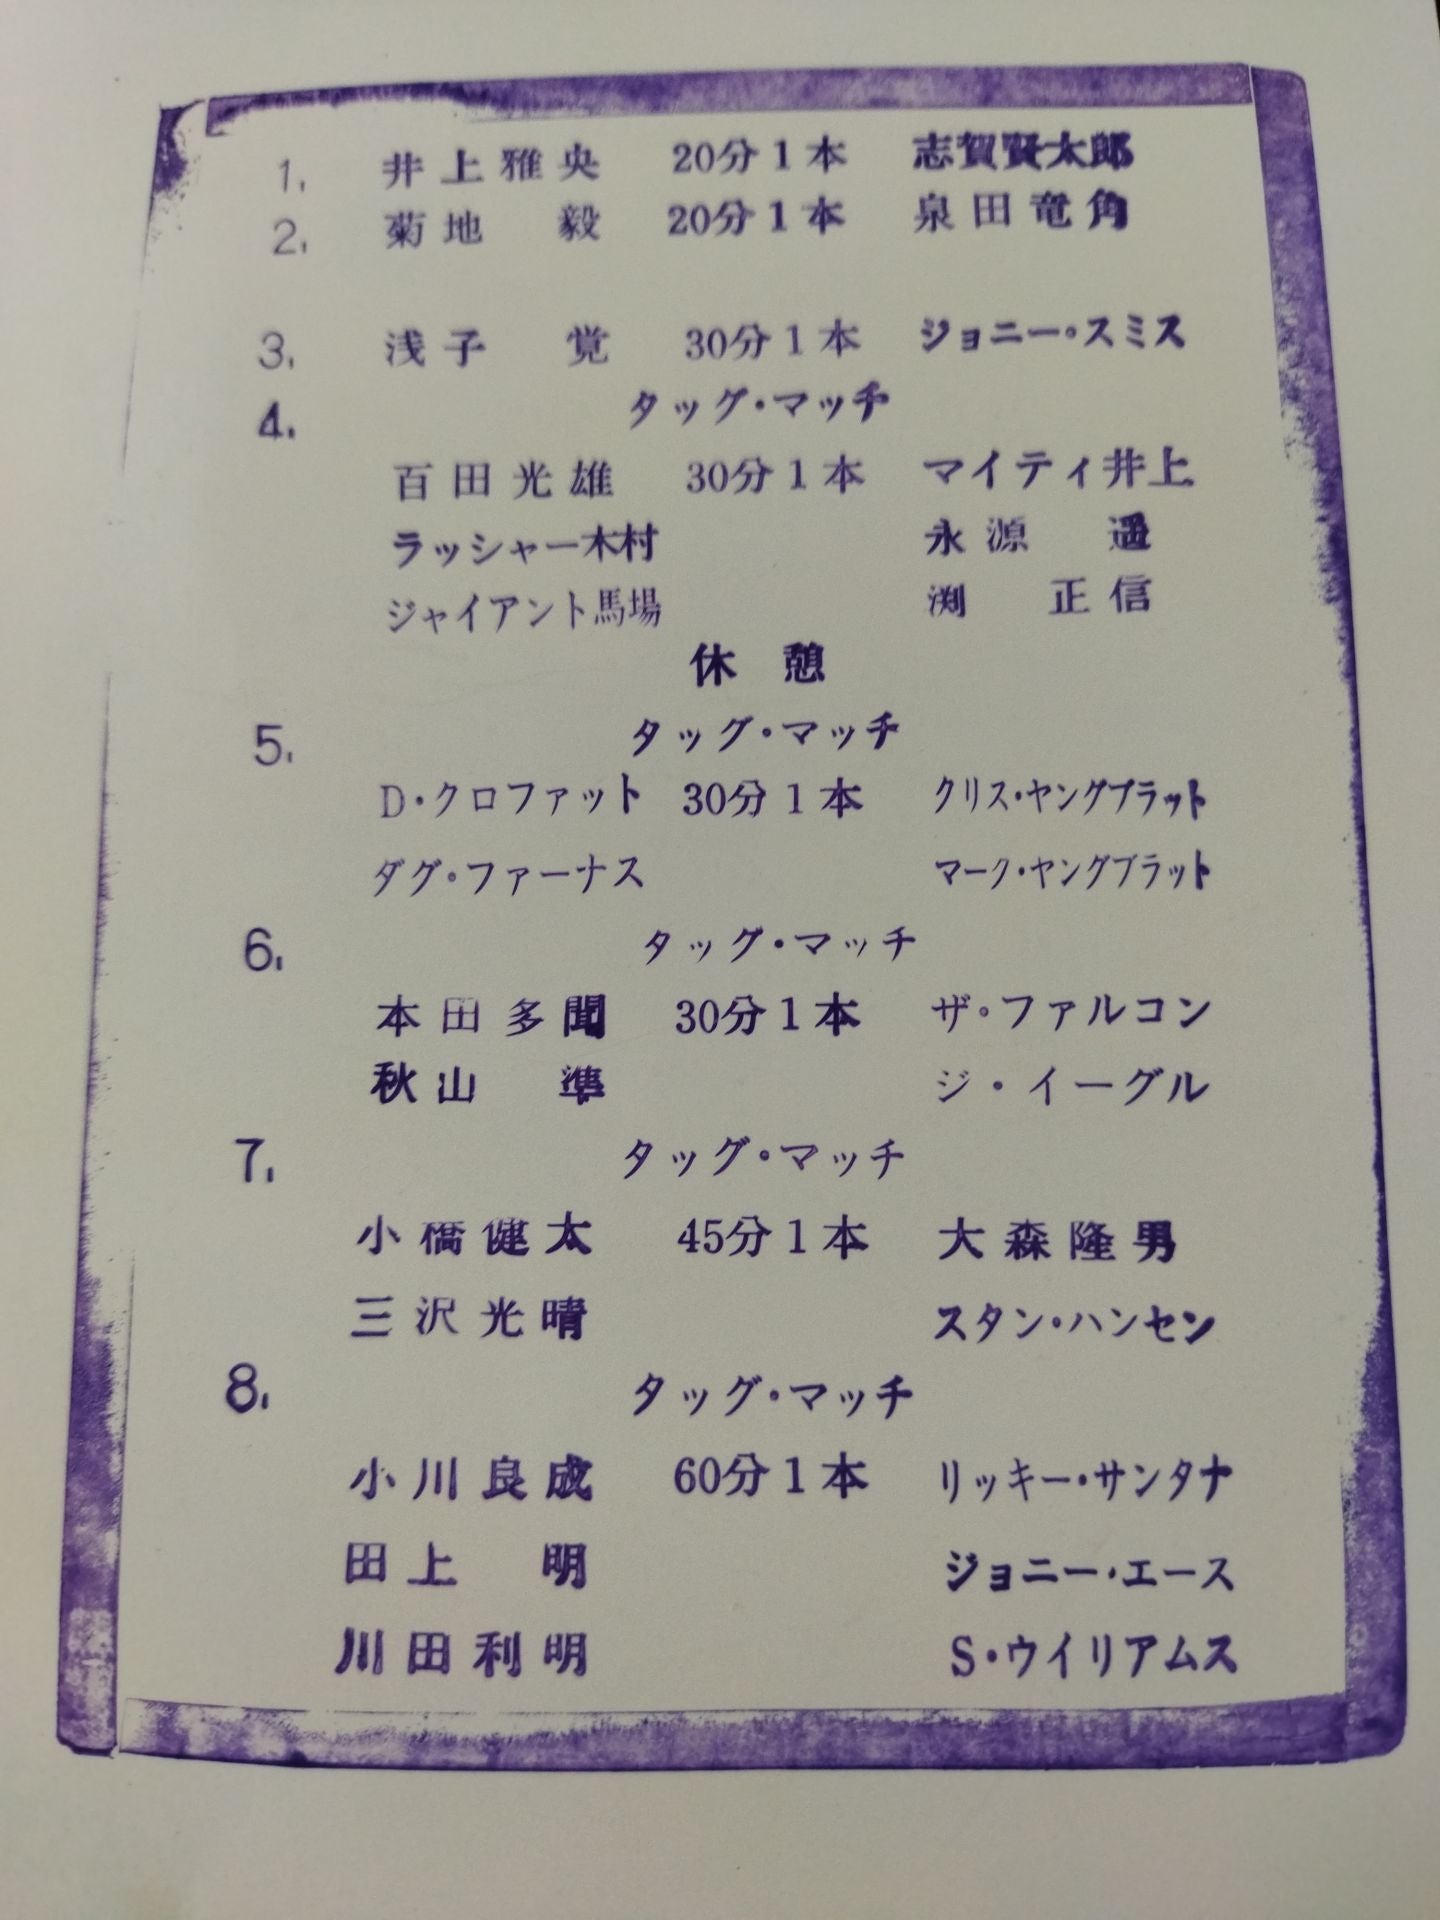 1. 井上雅央 20分1本 志賀賢太郎
2. 菊地 毅 20分1本 泉田竜角
3. 浅子 覚 30分1本 ジョニー・スミス
4. タッグ・マッチ
百田光雄 30分1本 マイティ井上
ラッシャー木村 永源 遥
ジャイアント馬場 渕 正信
休憩
5. タッグ・マッチ
D・クロファット 30分1本 クリス・ヤングブラット
ダグ・ファーナス マーク・ヤングブラット
6. タッグ・マッチ
本田多聞 30分1本 ザ・ファルコン
秋山 準 ジ・イーグル
7. タッグ・マッチ
小橋健太 45分1本 大森隆男
三沢光晴 スタン・ハンセン
8. タッグ・マッチ
小川良成 60分1本 リッキー・サンタナ
田上 明 ジョニー・エース
川田利明 S・ウイリアムス